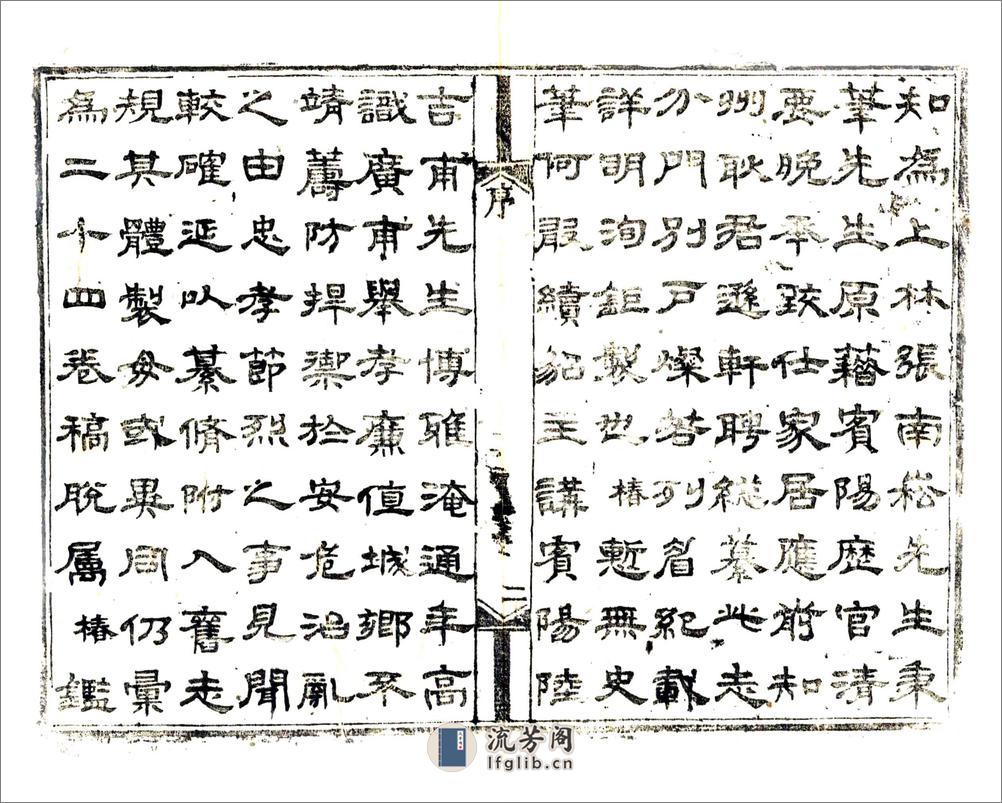 知為上林張南崧先生秉
筆先生原籍賓陽歷官清
要晚年致仕家居應前知
州耿君遜軒聘總纂此志
分門別戶燦若列眉紀載
詳明洵鉅製也椿慙無史
筆何敢續貂主講賓陽陸
序
二
吉甫先生博雅淹通年高
識廣甫舉孝廉值城鄉不
靖籌防捍禦於安危治亂
之由忠孝節烈之事見聞
較確延以纂脩附入舊志
規其體製毋或異同仍彙
為二十四卷稿脫屬椿鑑
流芳阁
lfglib.cn